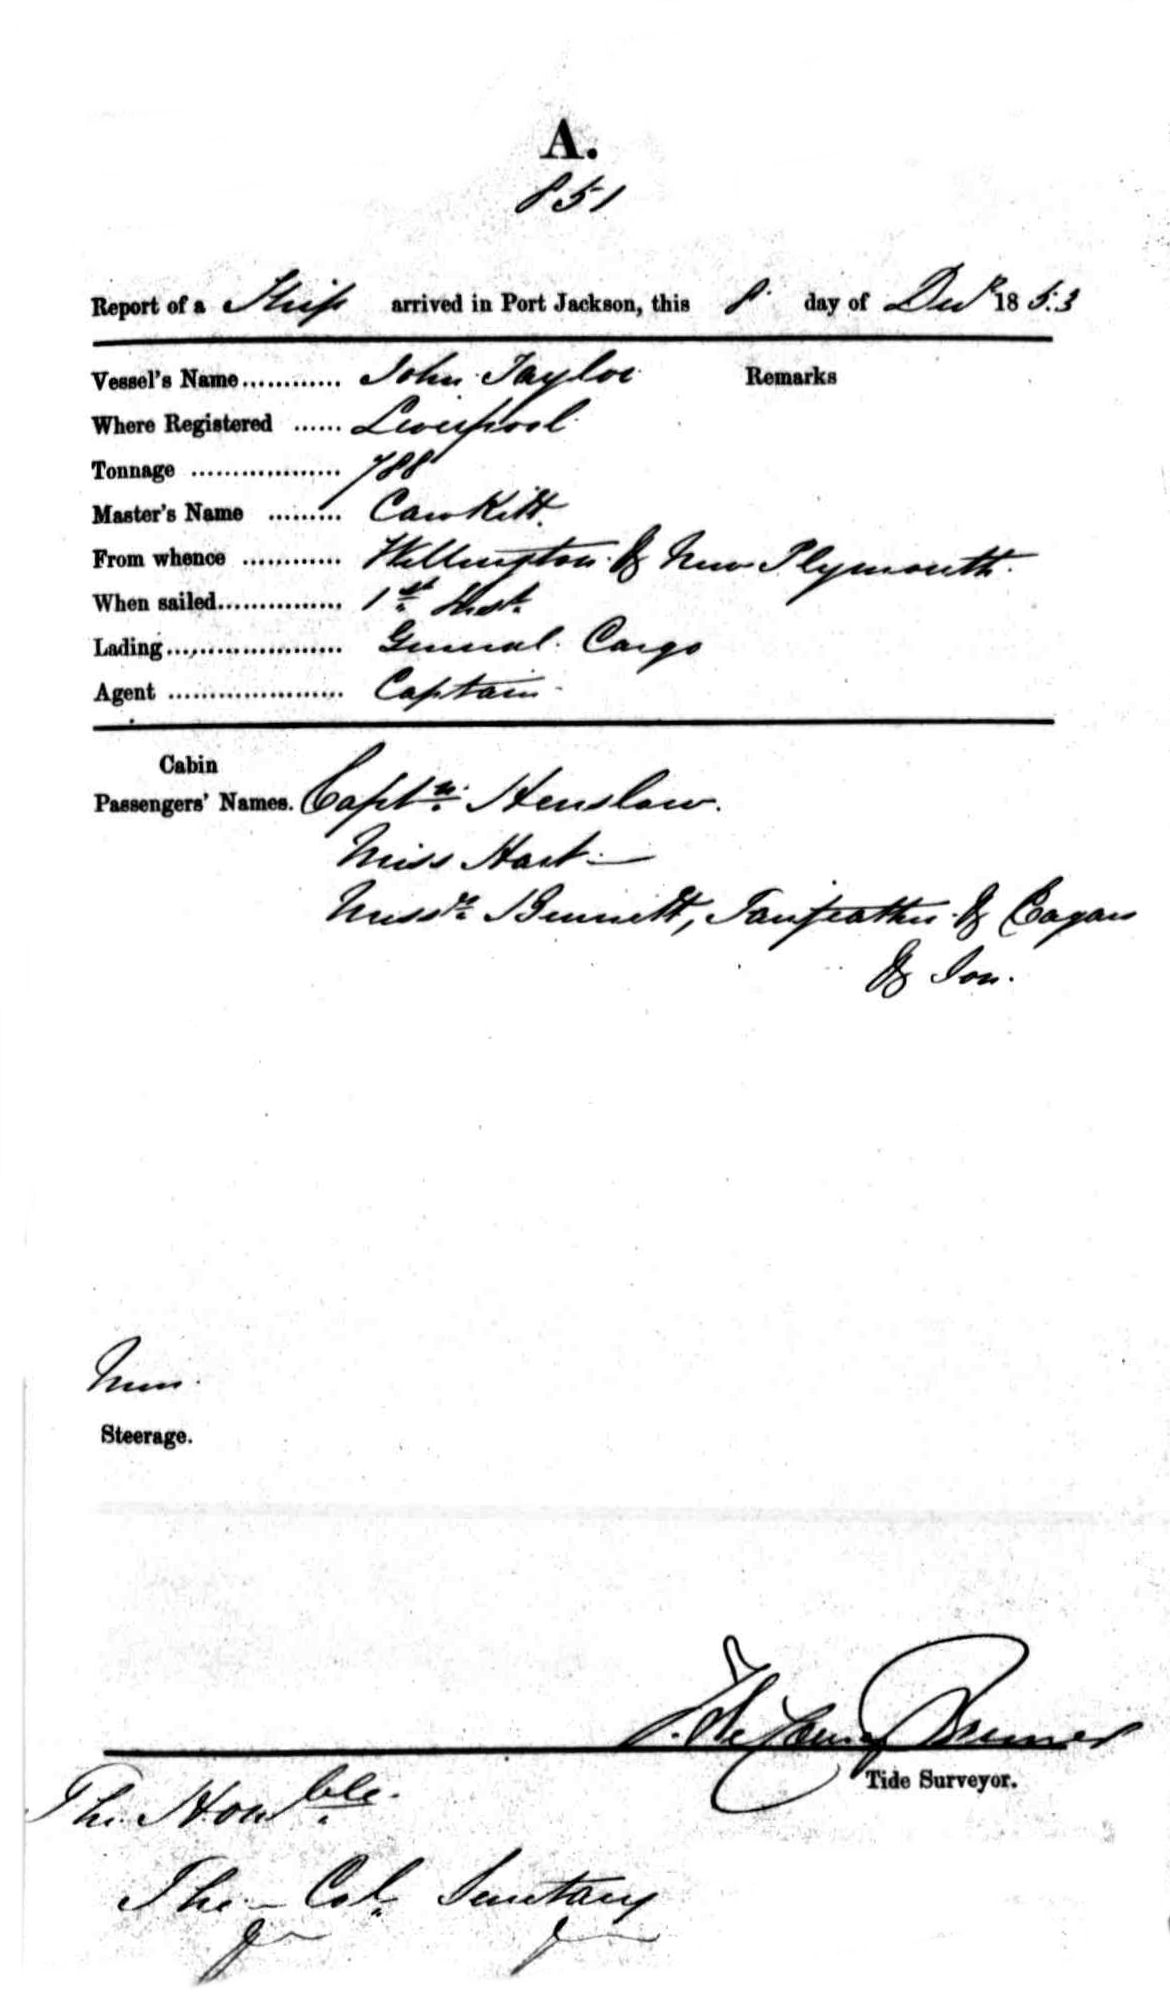 A.
851
Report of a Ship arrived in Port Jackson, this 8 day of Decr 1853
Vessel's Name............ John Taylor Remarks
Where Registered ...... Liverpool
Tonnage .................. 788
Master's Name ......... Cawkitt
From whence ............ Wellington & New Plymouth
When sailed............... 1st Inst
Lading..................... General Cargo
Agent ..................... Captain
Cabin
Passengers' Names. Captn Henslow.
Miss Hart
Messrs Bennett, Fairfeather & Eagan
& Son.
Steerage.
Tide Surveyor.
The Honble.
The Col. Secretary